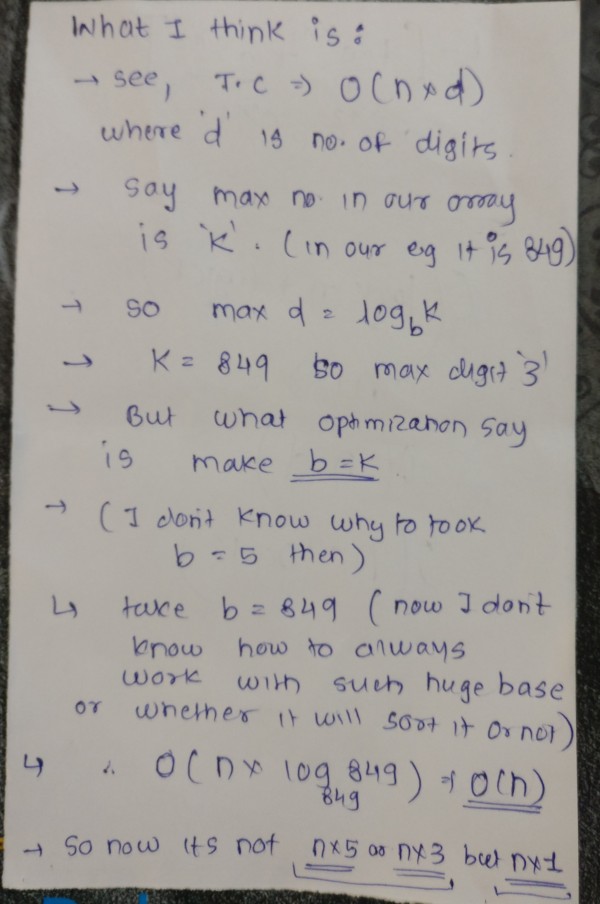 What I think is :
→ see, T.C ⇒ O(n×d)
where 'd' is no. of digits.
→ say max no. in our array
is 'K'. (in our eg it is 849)
→ so max d = log_b K
→ K = 849 so max digit '3'
→ But what optimization say
is make b=K
→ (I don't know why to took
b = 5 then)
↳ take b = 849 (now I don't
know how to always
work with such huge base
or whether it will sort it or not)
↳ ∴ O(n× log_849 849) ⇒ O(n)
→ so now its not n×5 or n×3 but n×1